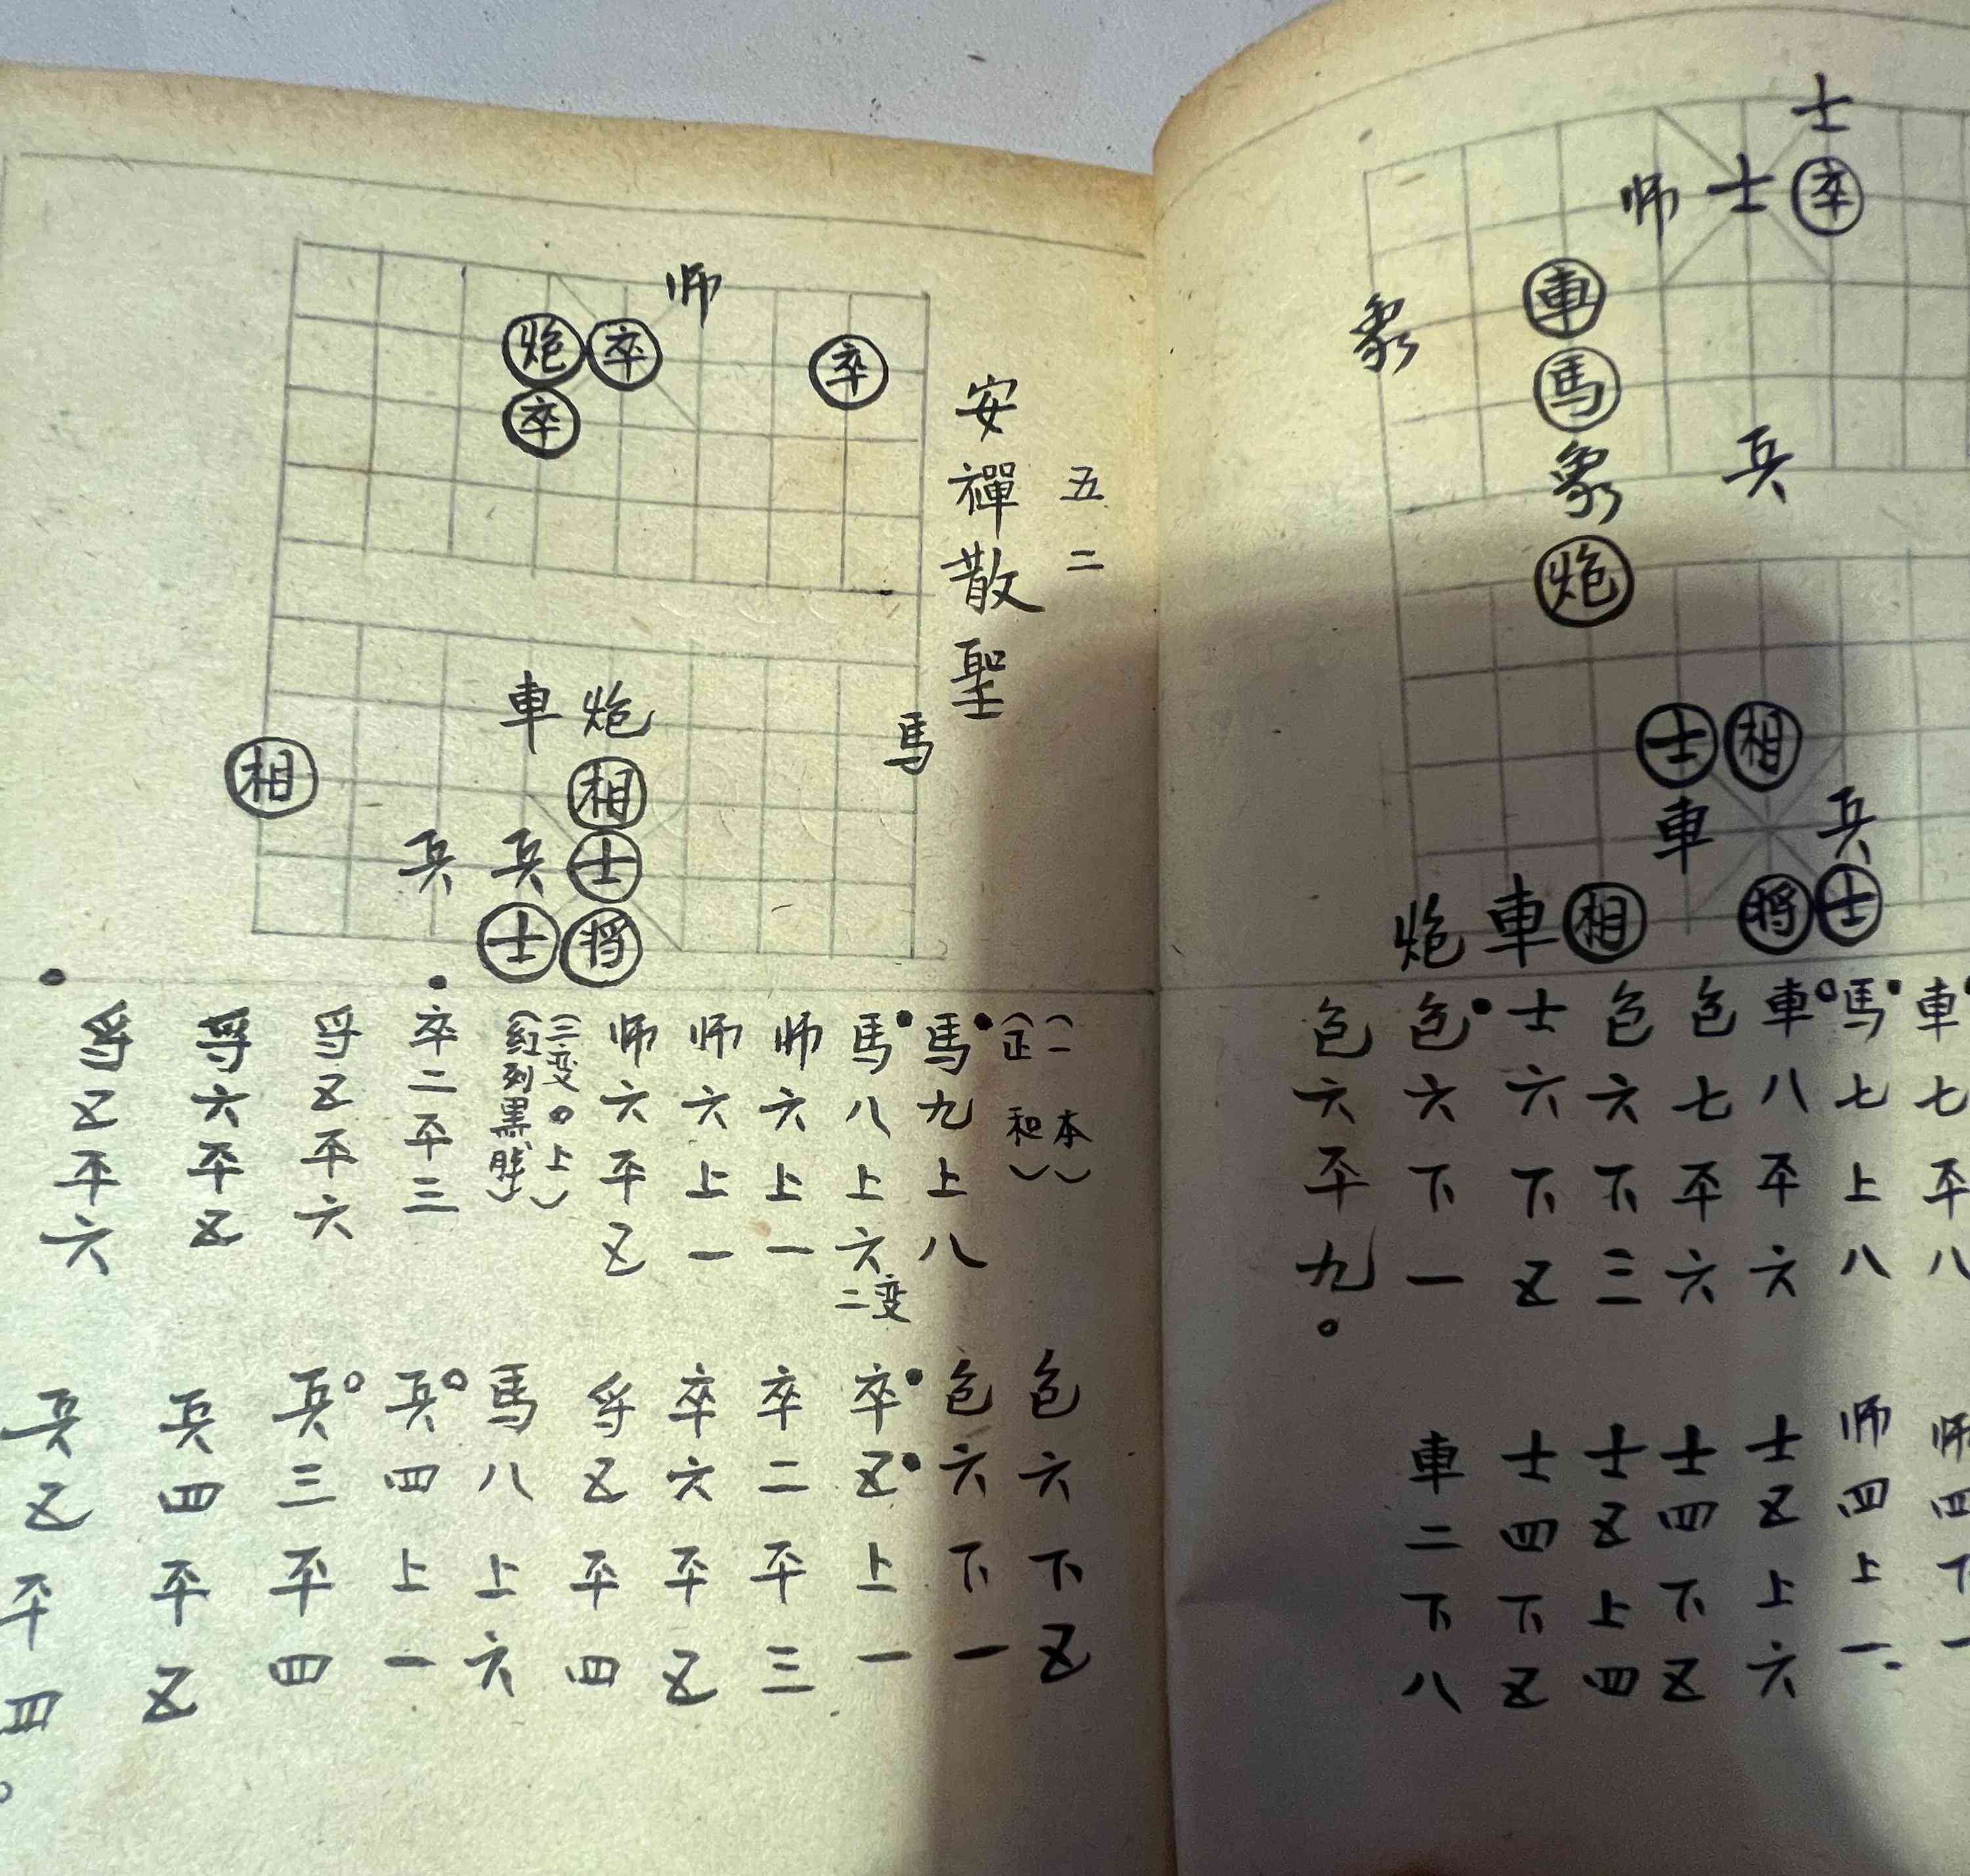 士
师士卒
車
象
馬
象
兵
炮
士相
車
兵
炮車相将士
車七平八
馬七上八
車八平六
包七平六
包六下三
士六下五
包六下一
包六平九。
师四下一
师四上一
士五上六
士四下五
士五上四
士四下五
車二下八
五二
安禪散聖
师
炮卒
卒
卒
車炮
馬
相
相
兵兵士
士将
(一本)
(正和)
馬九上八
馬八上六
二变
师六上一
师六上一
师六平五
(三变。上)
(紅列黒勝)
卒二平三
将五平六
将六平五
将五平六
包六下五
包六下一
卒五上一
卒二平三
卒六平五
将五平四
馬八上六
兵四上一
兵三平四
兵四平五
兵五平四